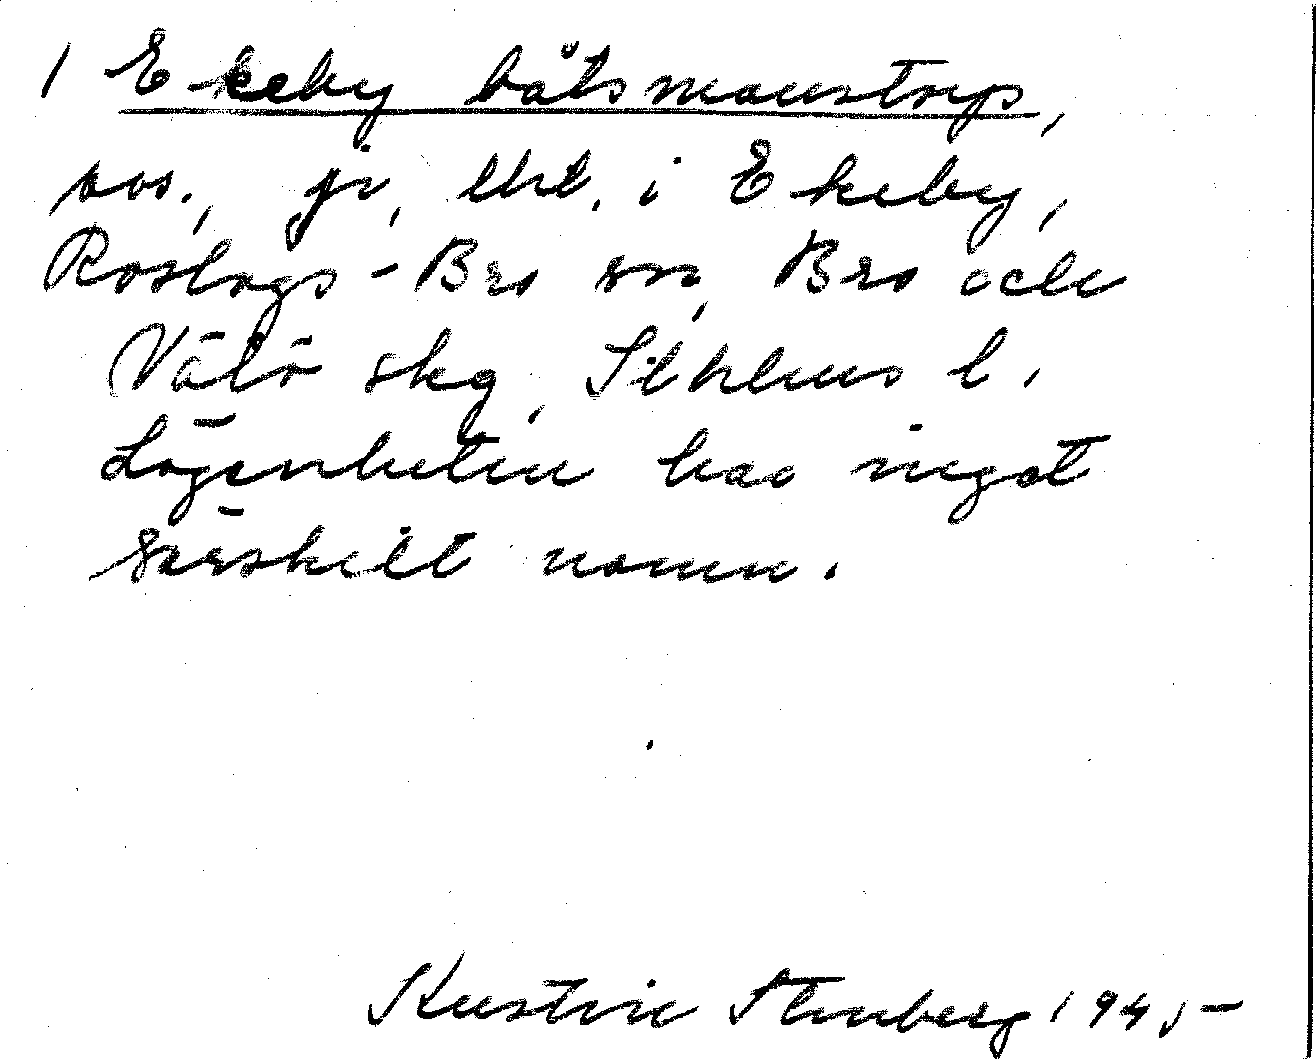 1 Ekeby båtsmanstorp,
pos., jr, lht. i Ekeby,
Roslags-Bro sn, Bro och
Vätö skg, Sthlms l.
Lägenheten har inget
särskilt namn.
Kerstin Stenberg 1945